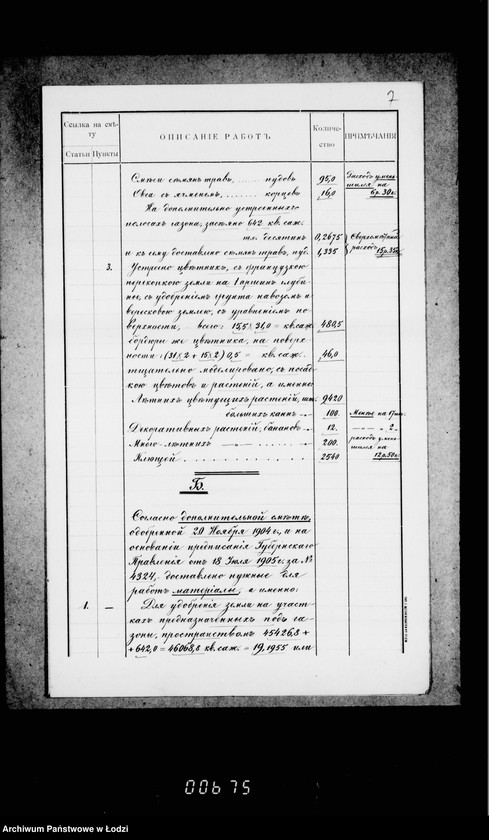 7
Ссылка на смѣту
Статьи Пункты
ОПИСАНІЕ РАБОТЪ
Количество
ПРИМѢЧАНІЯ
Смѣси сѣмянъ травъ, пудовъ 95,0 Расходъ уменьшился на 6 р. 30 к.
Овса съ ячменемъ, корцовъ 16,0
На дополнительно устроенныхъ
полосахъ газона, засѣяно 642 кв. саж.
десятинъ 0,2675 Сверхсмѣтный
и къ сему доставлено сѣмянъ травъ, пуд. 1,335 расходъ 15 р. 35 к.
3. Устроено цвѣтникъ, съ французскою
перекопкою земли на 1 аршинъ глубины,
съ удобреніемъ грунта навозомъ и
вересковою землею, съ уравненіемъ поверхности,
всего: 15,5 × 31,0 = кв. саж. 480,5
бордюры же цвѣтника, на поверхности:
(31×2 + 15×2) 0,5 = кв. саж. 46,0
тщательно моделировано; съ посадкою
цвѣтовъ и растеній, а именно:
Лѣтнихъ цвѣтущихъ растеній, шт. 9420
большихъ каннъ 100. Менѣе на
Декоративныхъ растеній, банановъ 12. — „ — 2.
Много лѣтнихъ — — 200. расходъ уменьшился на
Плющей 2540 12 р. 50 к.
Б.
Согласно дополнительной смѣтѣ,
одобренной 20 Ноября 1904 г., и на
основаніи предписанія Губернскаго
Правленія отъ 18 Іюля 1905 г. за №
4324, доставлено нужные для
работъ матеріалы, а именно:
1. — Для удобренія земли на участкахъ
предназначенныхъ подъ газоны,
пространствомъ 45426,8 +
+ 642,0 = 46068,8 кв. саж. = 19,1955 или
00675
Archiwum Państwowe w Łodzi